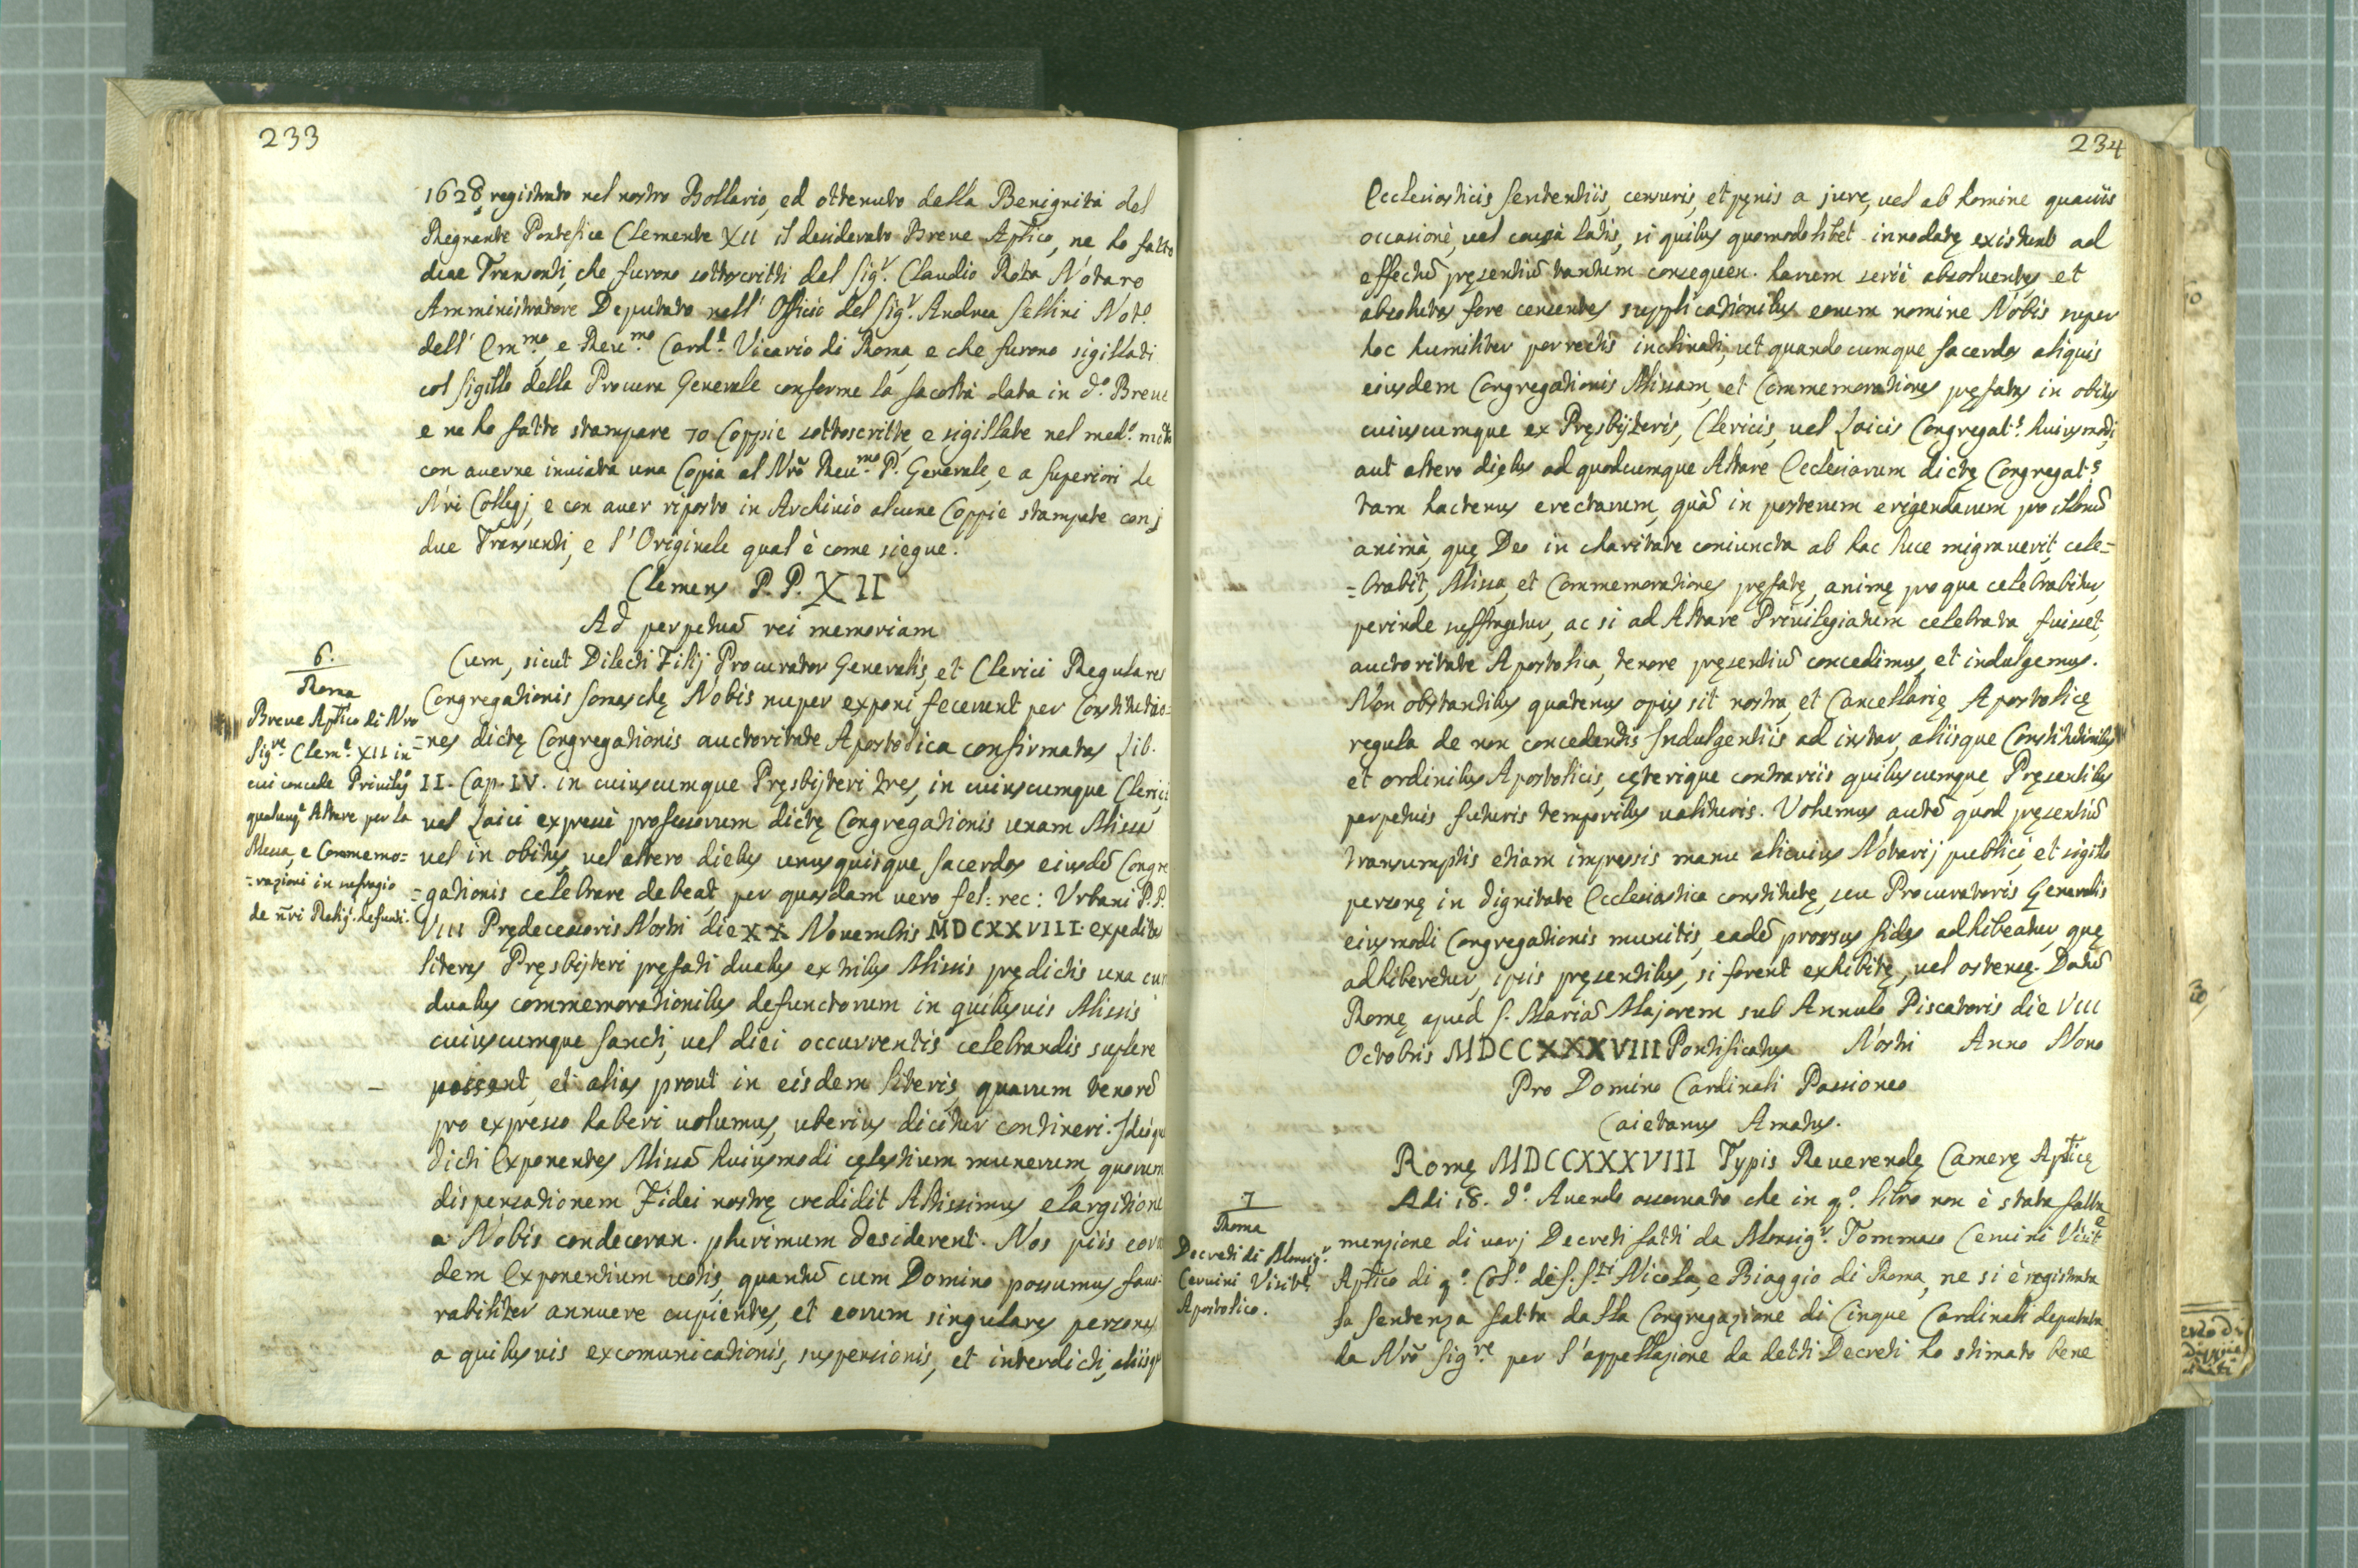 233
1628 registrato nel nostro Bollario, ed ottenuto della Benignità del
Regnante Pontefice Clemente XII il desiderato Breve Aptico, ne ho fatto
due Transonti, che furono sottoscritti del Sigr. Claudio Rota Notaro
Amministratore Deputato nell' Officio del Sigr. Andrea Sellini Noto.
dell' Emmo. e Reumo. Cardl. Vicario di Roma, e che furono sigillati
col sigillo della Procura Generale conforme la facoltà data in do. Breue
e ne ho fatto stampare 70 Coppie sottoscritte, e sigillate nel medo. modo
con auerne inuiata una Copia al Nro Reumo. P. Generale, e a Superiori de
Nri Collegj, e con auer riposto in Archiuio alcune Coppie stampate con j
due Transunti, e l'Originale qual è come siegue.
Clemens P. P. XII
Ad perpetuã rei memoriam
6.
Roma
Breue Aptico di Nro
Sigre. Clemte. XII in
cui concede Priuilego
qualunqe. Altare per la
Messa, e Commemo=
=razioni in sufragio
de nri Religi. defunti.
Cum, sicut Dilecti Filij Procurator Generalis, et Clerici Regulares
Congregationis Somaschę Nobis nuper exponi fecerunt per Constitutio=
=nes dictę Congregationis auctoritate Apostolica confirmatas Lib.
II. Cap. IV. in cuiuscumque Pręsbijteri tres, in cuiuscumque Clerici
vel Laici expressè professorum dictę Congregationis unam Missã
vel in obitus, vel altero diebus unusquisque sacerdos eiusdẽ Congre
=gationis celebrare debeat, per quasdam uero fel: rec: Urbani P.P.
VIII Prędecessoris Nostri die XX Novembris MDCXXVIII. expeditas
literas Pręsbijteri pręfati duabus ex tribus Missis prędictis una cum
duabus commemorationibus defunctorum in quibusuis Missis
cuiuscumque Sancti, vel diei occurrentis celebrandis suplere
possent, et alias prout in eisdem literis, quarum tenorẽ
pro expresso haberi uolumus, uberius dicitur contineri. Ideoque
dicti Exponentes Missã huiusmodi cęlestium munerum quorum
dispensationem Fidei nostrę credidit Altissimus elargitione
a Nobis condecoran. plurimum desiderent. Nos piis eorun
dem Exponentium uotis, quantũ cum Domino possumus fauo-
rabiliter annuere cupientes, et eorum singulares personas
a quibusuis excomunicationis, suspensionis, et interdicti, aliisque
234
Ecclesiasticis sententiis, censuris, et pęnis a jure, uel ab homine quauis
occasionè, uel causà latis, si quibus quomodolibet innodatę existunt ad
effectũ pręsentiũ tantum consequen. harum serie absoluentes, et
absolutas fore censentes supplicationibus eorum nomine Nobis super
hoc humiliter porrectis inclinati, ut quandocumque sacerdos aliquis
eiusdem Congregationis Missam, et Commemorationes pręfatas in obitus
cuiuscumque ex Pręsbijteris, Clericis, uel Laicis Congregats. huiusmodi,
aut altero diebus ad quodcumque Altare Ecclesiarum dictę Congregats.
tam hactenus erectarum, quã in posterum erigendarum pro illorũ
animà, quę Deo in charitate coniuncta ab hac luce migrauerit, cele=
=brabit, Missa, et Commemorationes pręfatę, animę pro qua celebrabitur,
perinde suffragetur, ac si ad Altare Priuilegiatum celebrata fuisset,
auctoritate Apostolica, tenore pręsentiũ concedimus, et indulgemus.
Non obstantibus quatenus opus sit nostra, et Cancellarię Apostolicę
regula de non concedendis Indulgentiis ad instar, aliisque Constitutionibus
et ordinibus Apostolicis, cęterisque contrariis quibuscumque, Pręsentibus
perpetuis futuris temporibus ualituris. Volumus autẽ quod pręsentiũ
transumptis etiam impressis manu alicuius Notarij publici, et sigillo
personę in dignitate Ecclesiastica constitutę, seu Procuratoris Generalis
eiusmodi Congregationis munitis, eadẽ prorsus fides adhibeatur, quę
adhiberetur, ipsis pręsentibus, si forent exhibitę, uel ostensę. Datũ
Romę apud S. Mariã Majorem sub Annulo Piscatoris die VIII
Octobris MDCCXXXVIII Pontificatus Nostri Anno Nono
Pro Domino Cardinali Passioneo
Caietanus Amatus.
Romę MDCCXXXVIII Typis Reverendę Camerę Apticę
7
Roma
Decreti di Monsigr.
Ceruini Visite.
Apostolico.
Adi 18. do. Avendo osseruato che in qo. libro non è stata fatta
menzione di uarj Decreti fatti da Monsigr. Tommaso Ceruini Visite
Aptico di qo. Colo. de S. Sti Nicola, e Biaggio di Roma, ne si è registrata
la sentenza fatta dalla Congregazione di Cinque Cardinali deputata
da Nrõ Sigre. per l'appellazione da detti Decreti ho stimato bene